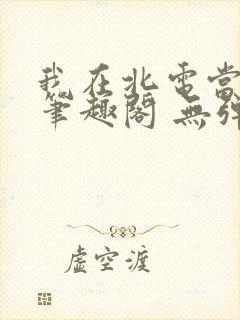 我在北電當
筆趣閣 無彈
虛空渡